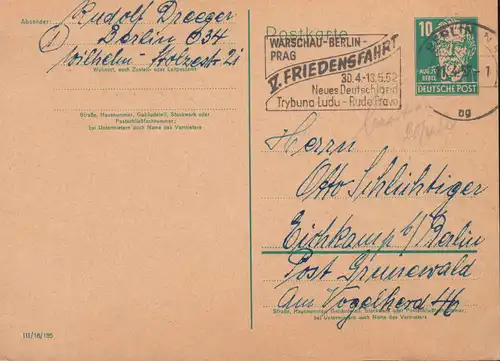 Absender:
Rudolf Draeger
Berlin O34
Wilhelm-Stolzestr 21
Wohnort, auch Zustell- oder Leitpostamt
Straße, Hausnummer, Gebäudeteil, Stockwerk oder
Postschließfachnummer;
bei Untermietern auch Name des Vermieters
III/18/185
Postkarte
WARSCHAU-BERLIN-
PRAG
V. FRIEDENSFAHRT
30.4-13.5.52
Neues Deutschland
Trybuna Ludu - Rude Pravo
BERLIN N
bg
10
AUGUST
BEBEL
DEUTSCHE POST
Herrn
Otto Schlichtiger
Eichkamp b/Berlin
Post Grunewald
Am Vogelherd 46
Straße, Hausnummer, Gebäudeteil, Stockwerk oder Postschließfachnummer,
bei Untermietern auch Name des Vermieters